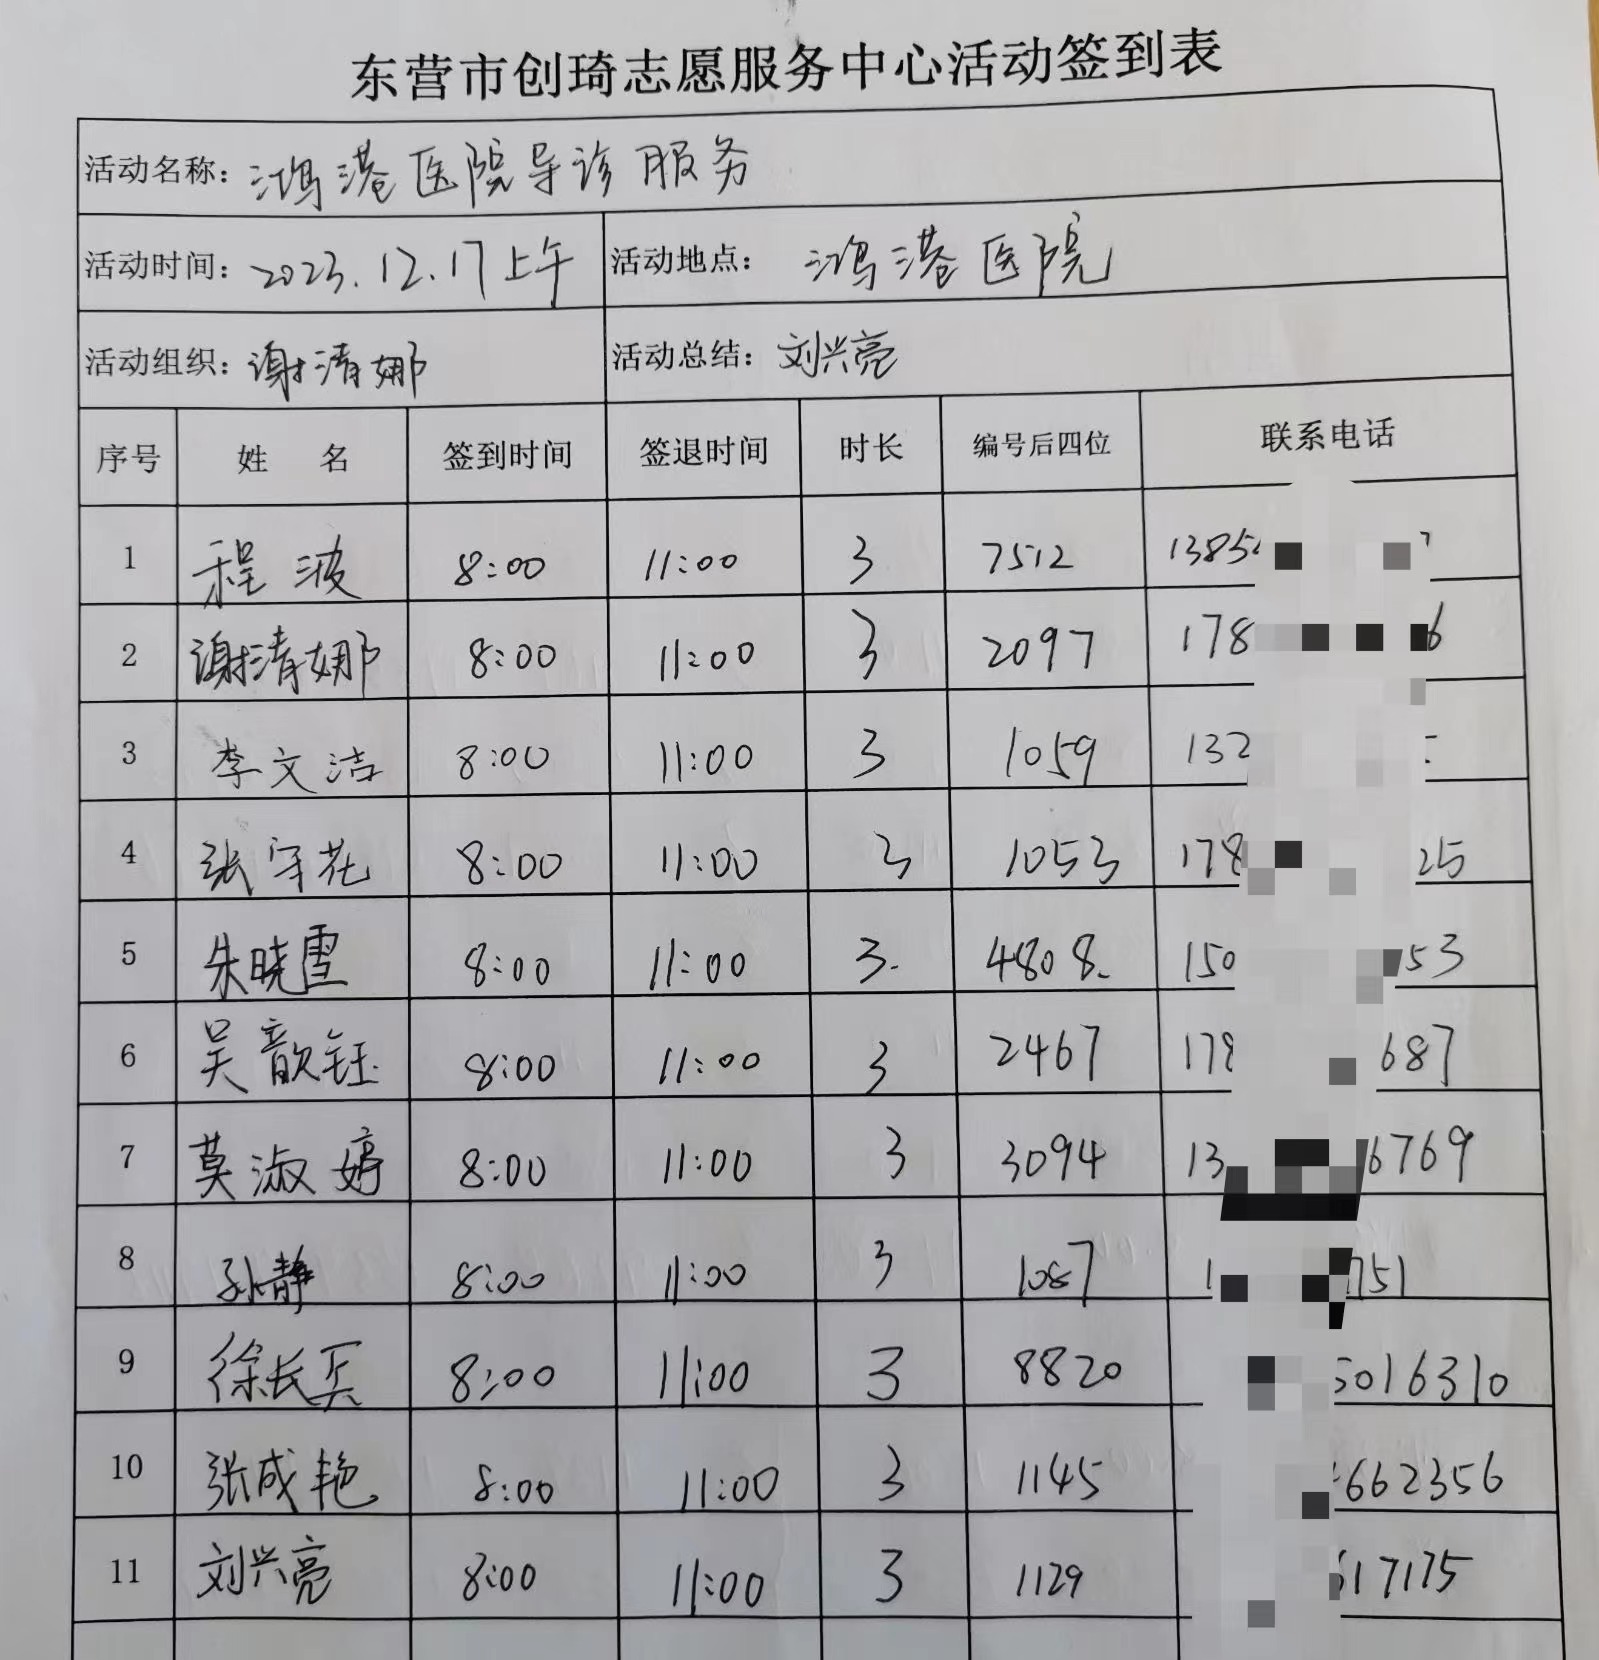 东营市创琦志愿服务中心活动签到表
活动名称：鸿港医院导诊服务
活动时间：2023.12.17上午 活动地点：鸿港医院
活动组织：谢清娜 活动总结：刘兴亮
序号 姓 名 签到时间 签退时间 时长 编号后四位 联系电话
1 程波 8:00 11:00 3 7512 1385
2 谢清娜 8:00 11:00 3 2097 178 6
3 李文洁 8:00 11:00 3 1059 132
4 张守花 8:00 11:00 3 1053 178 25
5 朱晓雪 8:00 11:00 3. 4808. 150 53
6 吴歆钰 8:00 11:00 3 2467 178 687
7 莫淑婷 8:00 11:00 3 3094 13 6769
8 孙静 8:00 11:00 3 1087 1 751
9 徐长兵 8:00 11:00 3 8820 5016310
10 张成艳 8:00 11:00 3 1145 662356
11 刘兴亮 8:00 11:00 3 1129 617175